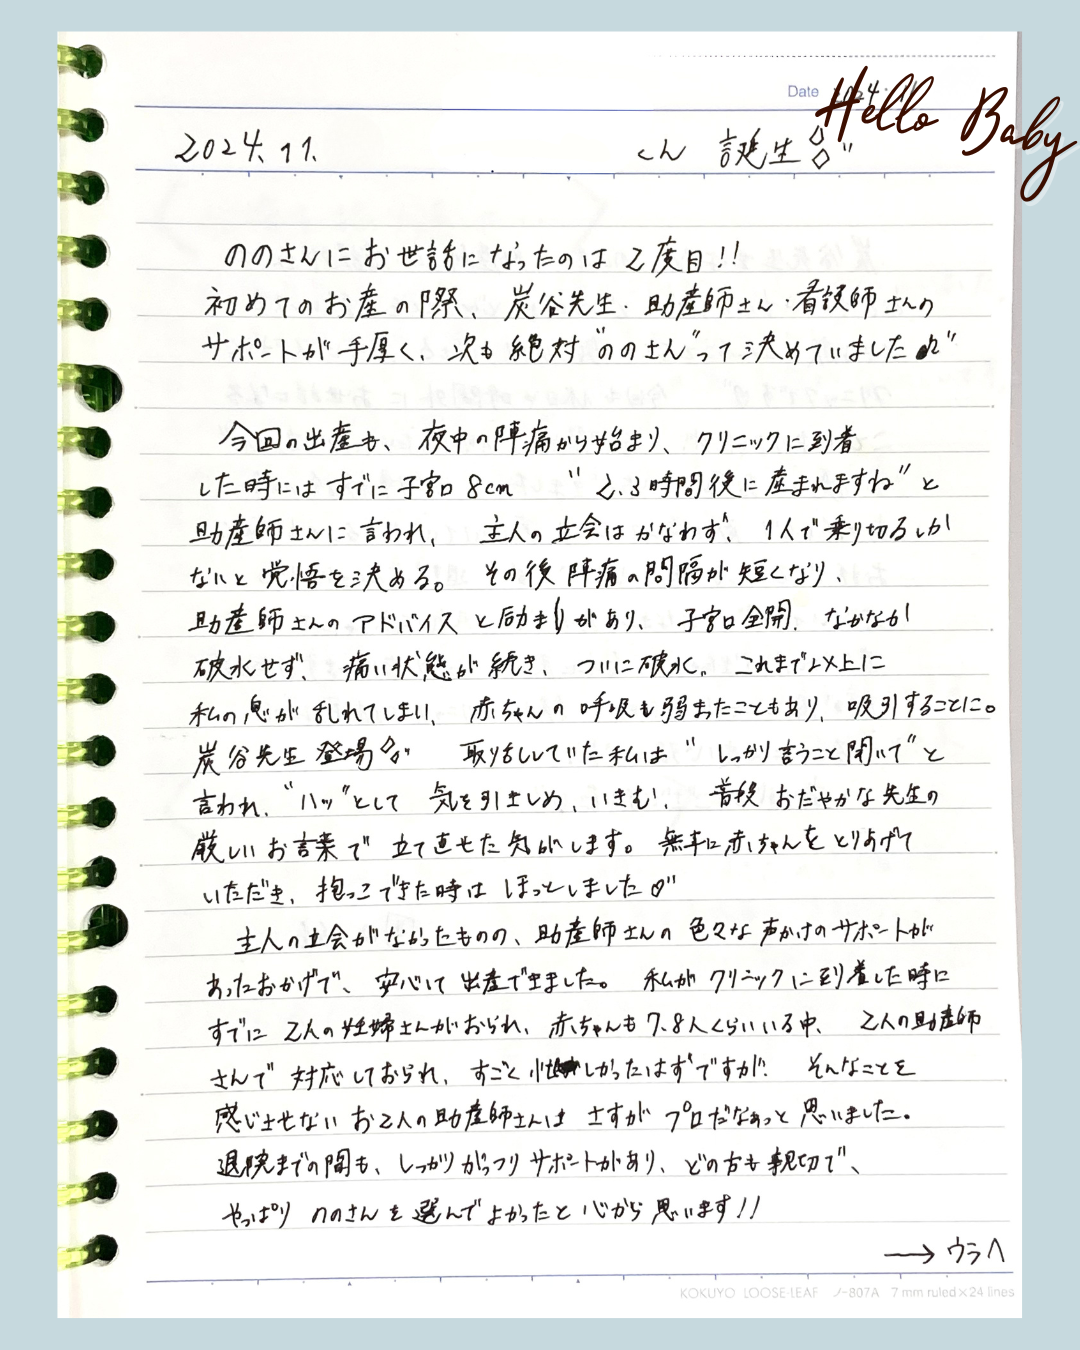 Hello Baby
Date 2024.
2024.11.
くん 誕生
ののさんにお世話になったのは2度目!!
初めてのお産の際、炭谷先生・助産師さん・看護師さんの
サポートが手厚く、次も絶対"ののさん"って決めていました♪"
今回の出産も、夜中の陣痛から始まり、クリニックに到着
した時にはすでに子宮口8cm "2.3時間後に産まれますね"と
助産師さんに言われ、主人の立会はかなわず、1人で乗り切るしか
ないと覚悟を決める。その後陣痛の間隔が短くなり、
助産師さんのアドバイスと励まりがあり、子宮口全開、なかなか
破水せず、痛い状態が続き、ついに破水。これまで以上に
私の息が乱れてしまい、赤ちゃんの呼吸も弱まったこともあり、吸引することに。
炭谷先生登場 取り乱していた私は"しっかり言うこと聞いて"と
言われ、"ハッ"として気を引きしめ、いきむ、普段おだやかな先生の
厳しいお言葉で立て直せた気がします。無事に赤ちゃんをとりあげて
いただき、抱っこできた時はほっとしました♡"
主人の立会がなかったものの、助産師さんの色々な声かけのサポートが
あったおかげで、安心して出産できました。私がクリニックに到着した時に
すでに2人の妊婦さんがおられ、赤ちゃんも7.8人くらいいる中、2人の助産師
さんで対応しておられ、すごく忙しかったはずですが、そんなことを
感じさせないお2人の助産師さんはさすがプロだなぁっと思いました。
退院までの間も、しっかりがっつりサポートがあり、どの方も親切で、
やっぱりののさんを選んでよかったと心から思います!!
→ウラへ
KOKUYO LOOSE-LEAF ノ-807A 7 mm ruled×24 lines